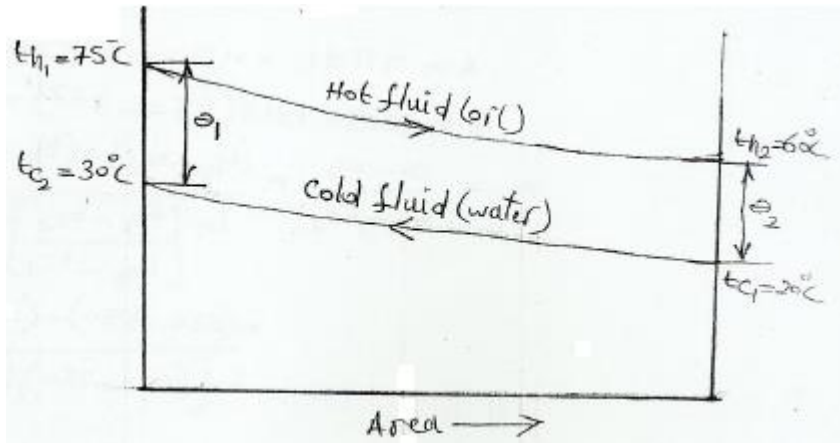 th₁ = 75°C
Hot fluid (oil)
θ₁
th₂ = 60°C
tc₂ = 30°C
Cold fluid (water)
θ₂
tc₁ = 20°C
Area →